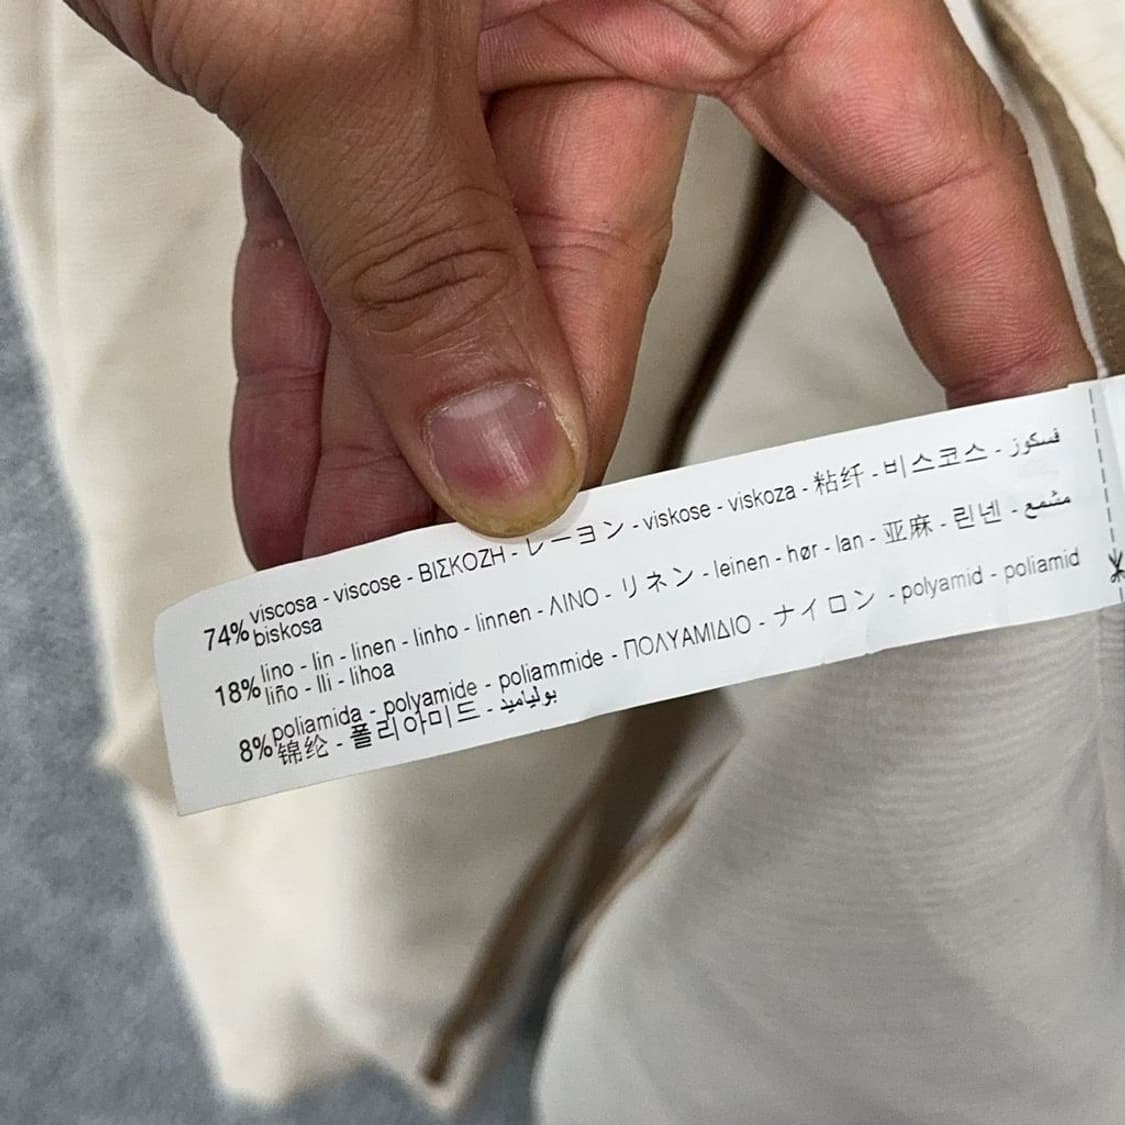 74% viscosa - viscose - ΒΙΣΚΟΖΗ - レーヨン - viskose - viskoza - 粘纤 - 비스코스 - فسكوز
biskosa
18% lino - lin - linen - linho - linnen - ΛΙΝΟ - リネン - leinen - hør - lan - 亚麻 - 린넨 - مشمع
liño - lli - lihoa
8% poliamida - polyamide - poliammide - ΠΟΛΥΑΜΙΔΙΟ - ナイロン - polyamid - poliamid
锦纶 - 폴리아미드 - بولياميد